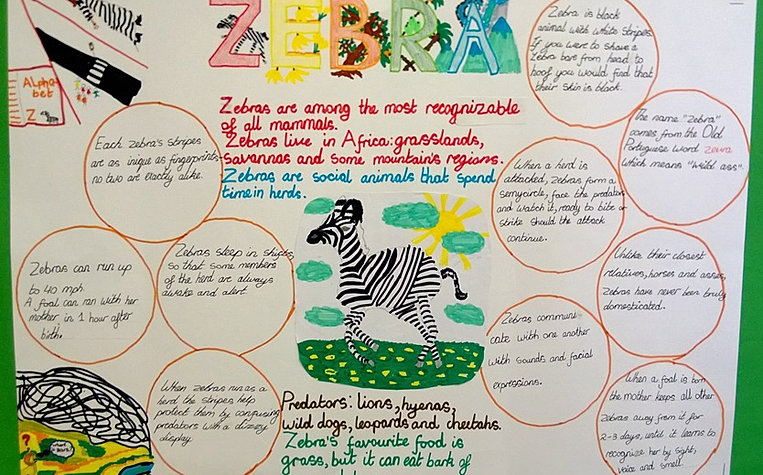 ZEBRA
Alpha-
bet
Z
Zebras are among the most recognizable
of all mammals.
Zebras live in Africa: grasslands,
savannas and some mountain's regions.
Zebras are social animals that spend
time in herds.
Zebra is black
animal with white stripes
If you were to shave a
Zebra bare from head to
hoof you would find that
their skin is black.
The name "zebra"
comes from the Old
Portuguese word zeura
which means "wild ass".
Each zebra's stripes
are as inique as fingerprints-
no two are exactly alike.
When a herd is
attacked, zebras form a
semycircle, face the predator
and watch it, ready to bite or
strike should the attack
continue.
Zebras can run up
to 40 mph.
A foal can ran with her
mother in 1 hour after
birth.
Zebras sleep in shifts,
so that some members
of the herd are always
awake and alert.
Unlike their closest
relatives, horses and asses,
zebras have never been truly
domesticated.
Zebras communi-
cate with one another
with sounds and facial
expressions.
When zebras run as a
herd the stripes help
protect them by confusing
predators with a dizzey
display.
Predators: lions, hyenas,
wild dogs, leopards and cheetahs.
Zebra's favourite food is
grass, but it can eat bark of
When a foal is born
the mother keeps all other
zebras away from it for
2-3 days, until it learns to
recognize her by sight,
voice and smell.